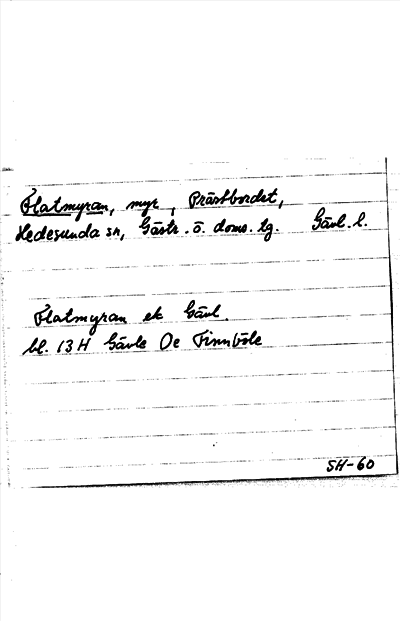 Flatmyran, myr, Prästbordet,
Hedesunda sn, Gästr. ö. doms. tg. Gävl. l.
Flatmyran ek Gävl.
bl. 13 H Gävle Oe Finnböle
SH-60